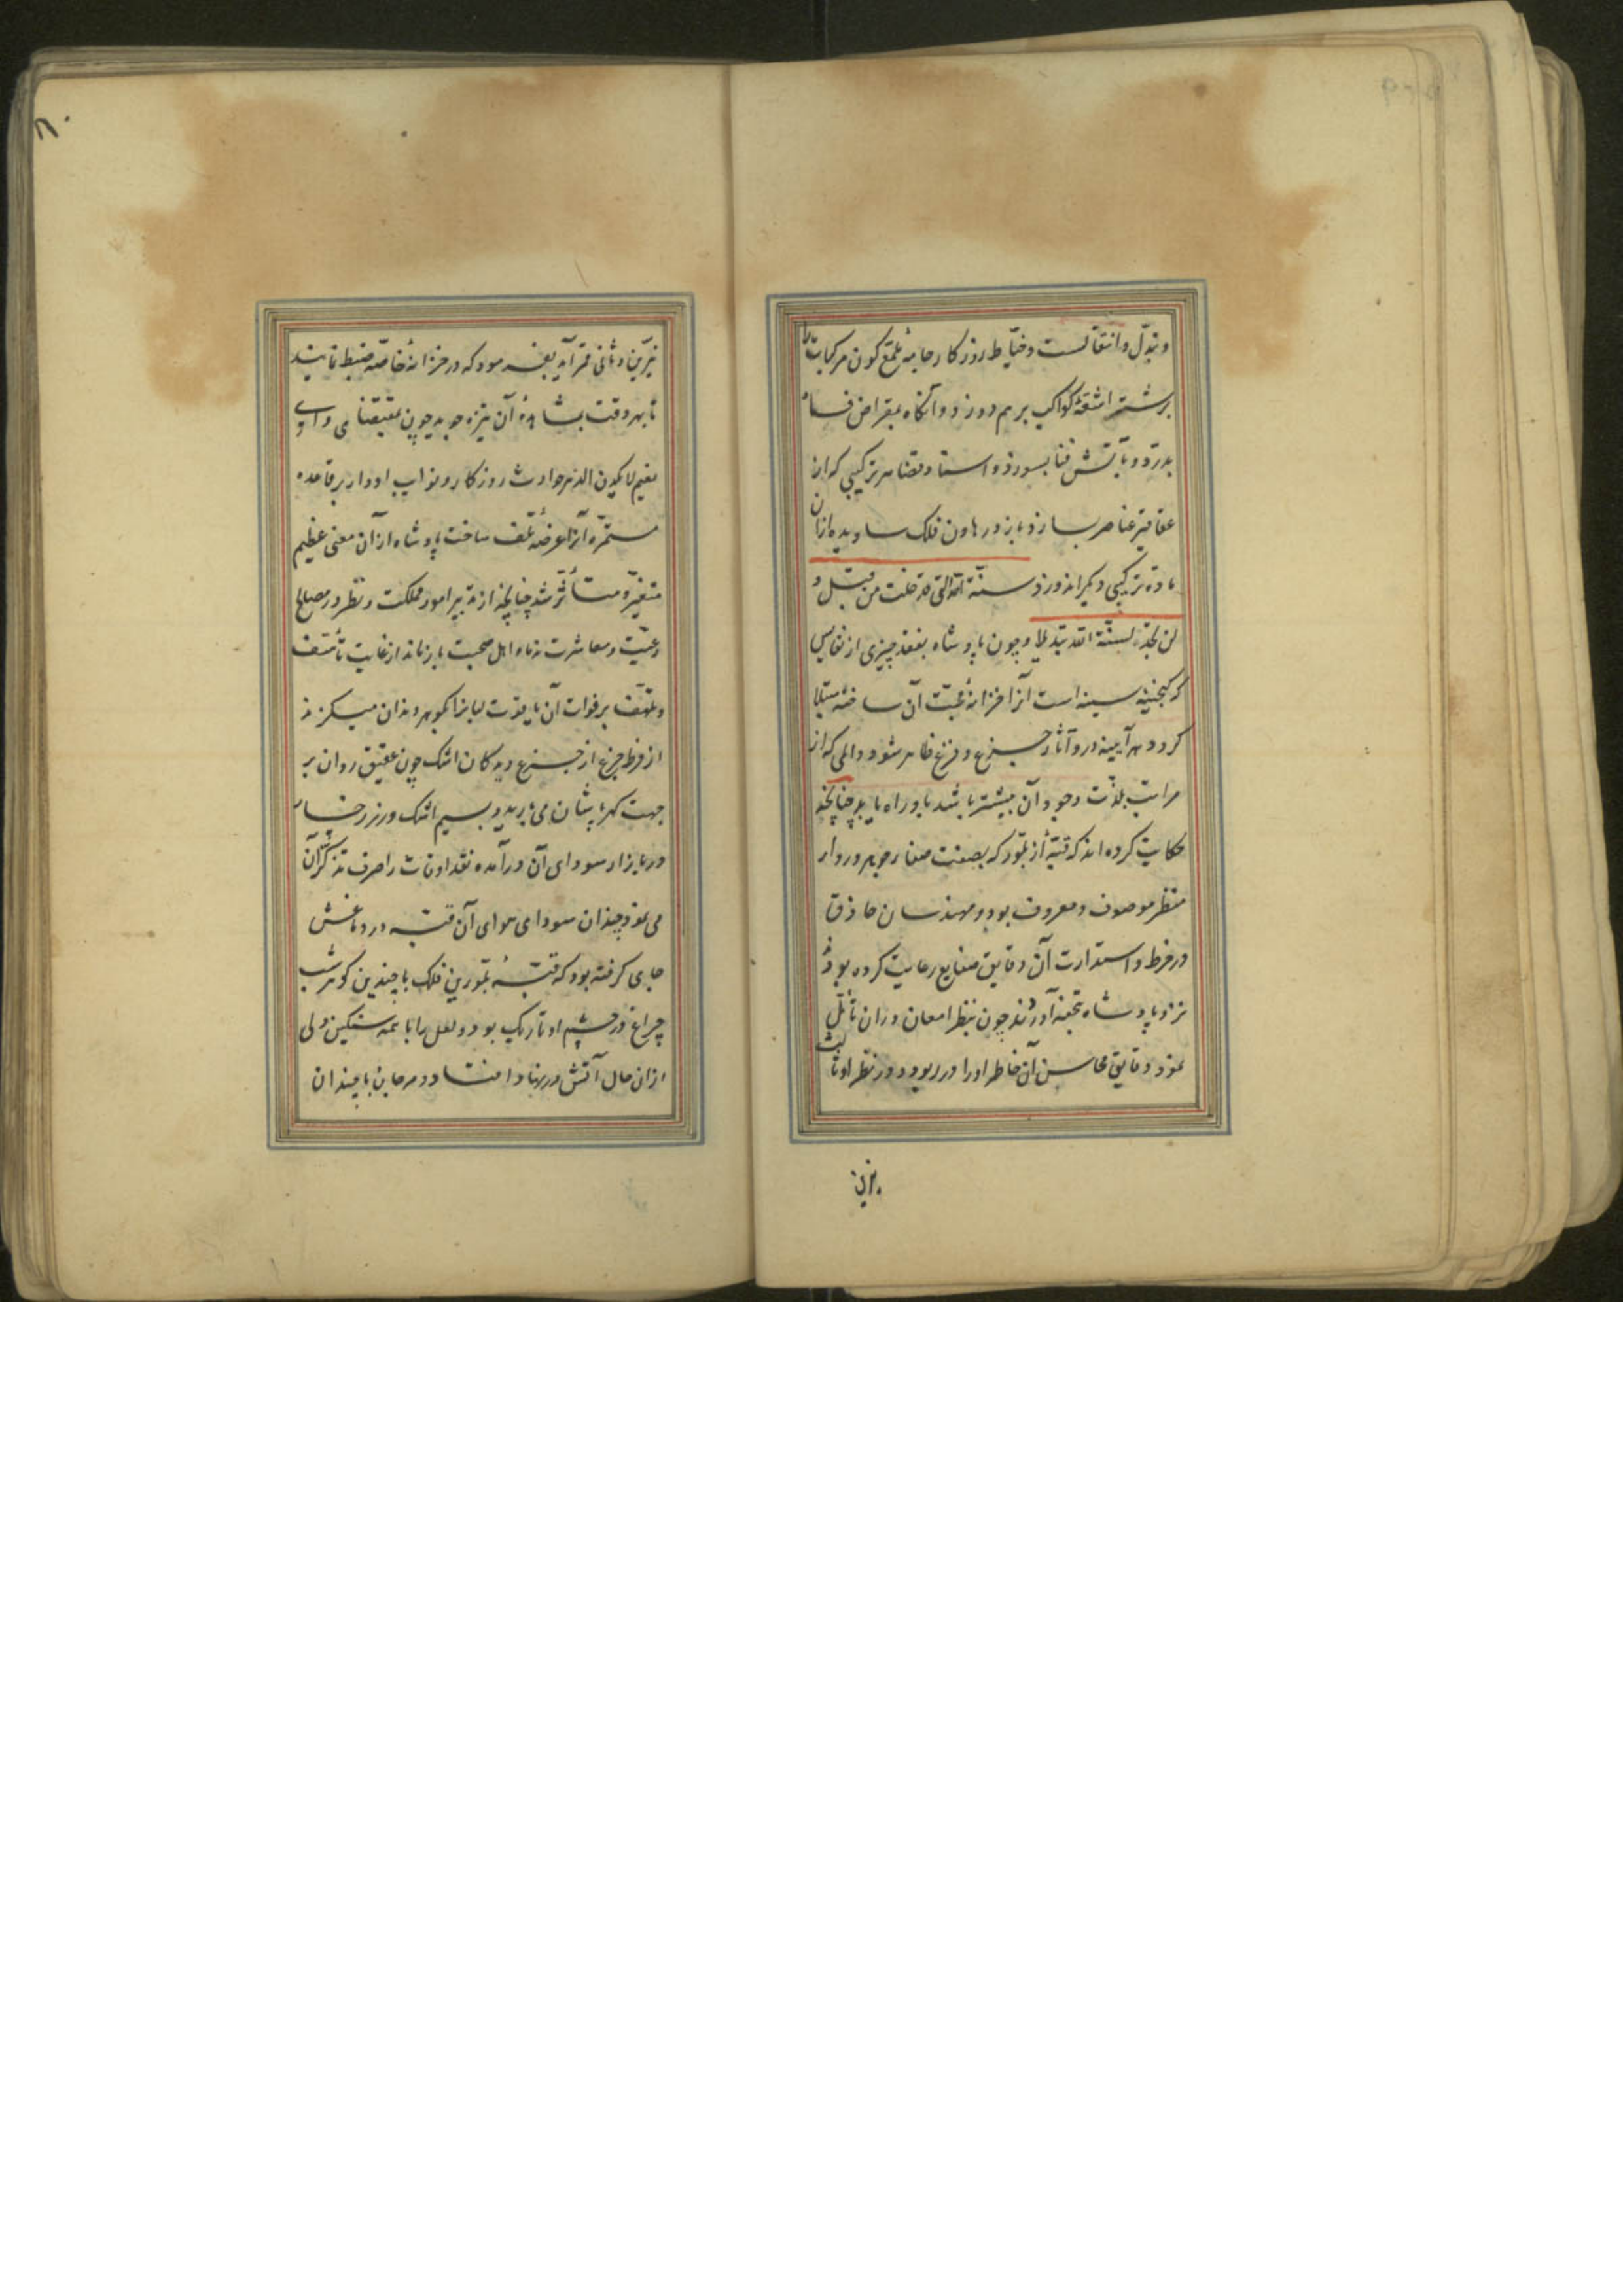 و تبدّل و انتقالست و خیّاط روزگار جامهٔ ملمّع کون مرکبات را
برشتهٔ اشعّهٔ کواکب برهم دوزد و آنگاه بمقراض فساد
بدرّد و بآتش فنا بسوزد و استاد قضا هر ترکیبی که از
عقاقیر عناصر بسازد باز در هاون فلک ساویده ازان
مادّه ترکیبی دیگر اندوزد سنّة الله التی قد خلت من قبل و
لن تجد لسنّة الله تبدیلا و چون پادشاه بفقد چیزی از نفایس
که گنجینهٔ سینه است آنرا خزانهٔ محبّت آن ساخته مبتلا
گردد هرآیینه درو آثار جزع و فزع ظاهر شود و المی که از
مراتب لذّت وجود آن بیشتر باشد باو راه یابد چنانچه
حکایت کرده‌اند که قبّهٔ از بلّور که بصفت صفا و جوهر و رواء
منظر موصوف و معروف بود و مهندسان حاذق
در خرط و استدارت آن دقایق صنایع رعایت کرده بودند
نزد پادشاه تحفه آوردند چون بنظر امعان دران تأمّل
نمود دقایق محاسن آن خاطر او را در ربود و در نظر او ثالث
نیّرین
۸۰
نیّرین و ثانی قمر آمد بفرمود که در خزانهٔ خاصّه ضبط نمایند
تا بهر وقت بمشاهدهٔ آن تنزّه جوید چون بمقتضای و ای
نعیم لا یکدّره الدهر حوادث روزگار و نوایب ادوار بر قاعدهٔ
مستمرّه آنرا عرضهٔ تلف ساخت پادشاه ازان معنی عظیم
متغیّر و متأثّر شد چنانچه از تدبیر امور مملکت و نظر در مصالح
رعیّت و معاشرت ندماء اهل صحبت بازماند از غایت تأسّف
و تلهّف بر فوات آن یاقوت لبانرا بگوهر دندان میگزید
از فرط جزع از جزع دیدگان اشک چون عقیق روان بر
جهت کهرباشان می‌بارید و بسیم اشک و زر رخسار
در بازار سودای آن درآمده نقد اوقات را صرف تذکّر آن
می‌نمود چندان سودای هوای آن قبّه در دماغش
جای گرفته بود که قبّهٔ بلّورین فلک با چندین گوهر شب
چراغ در چشم او تاریک بود و لعل را با همه سنگین دلی
ازان حال آتش در نهاد افتاد و مرجان با چندان